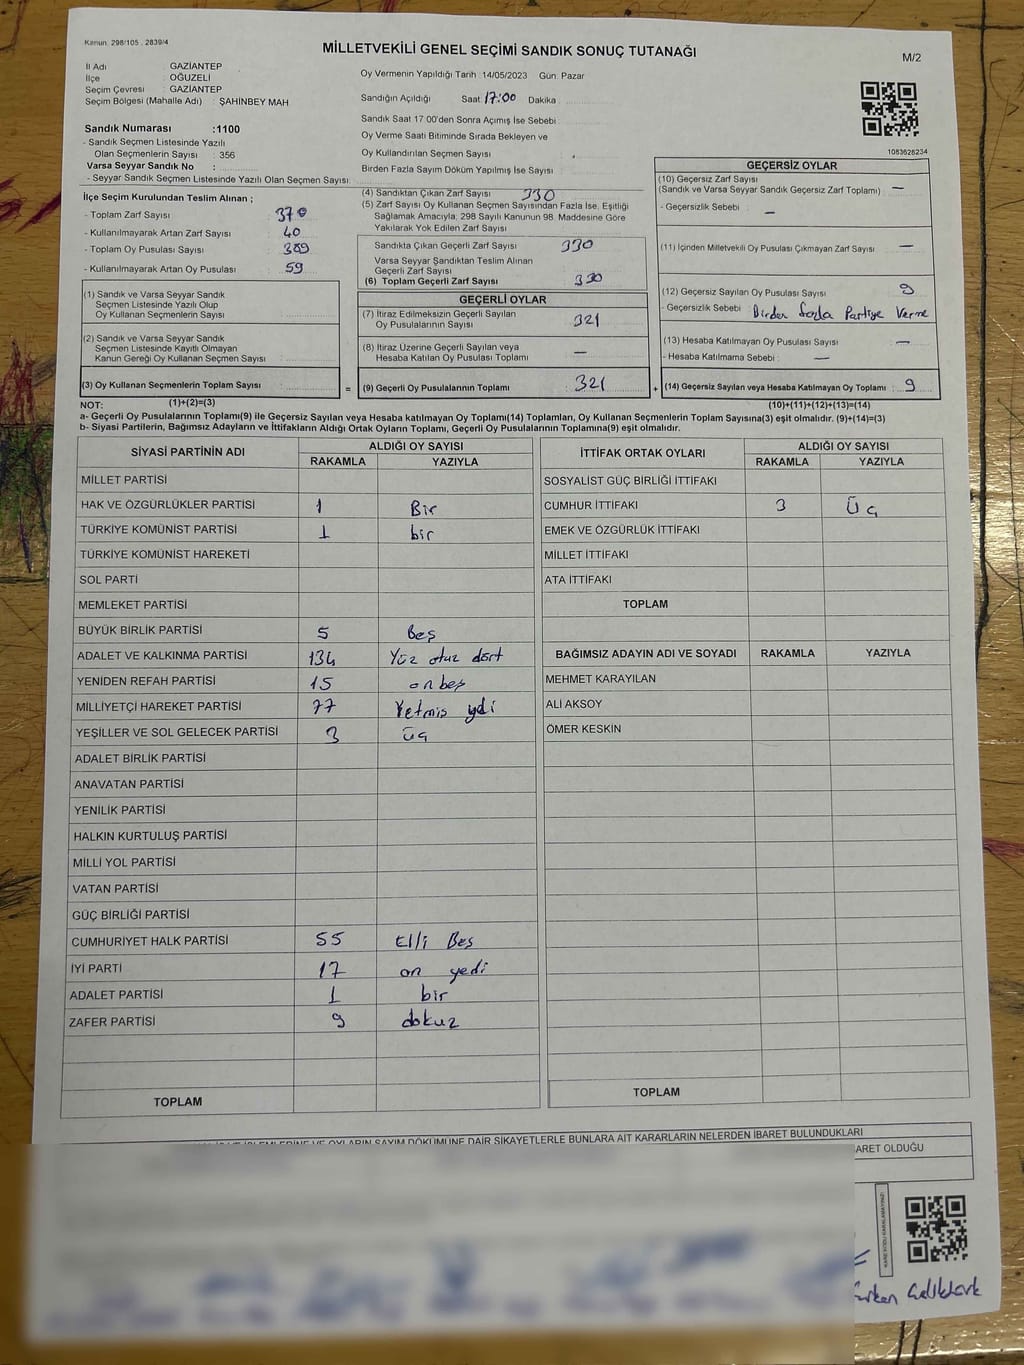 Kanun 298/105 , 2839/4
MİLLETVEKİLİ GENEL SEÇİMİ SANDIK SONUÇ TUTANAĞI
M/2
İl Adı GAZİANTEP
İlçe OĞUZELİ
Seçim Çevresi GAZİANTEP
Seçim Bölgesi (Mahalle Adı) : ŞAHİNBEY MAH
Sandık Numarası :1100
- Sandık Seçmen Listesinde Yazılı
Olan Seçmenlerin Sayısı : 356
Varsa Seyyar Sandık No :
- Seyyar Sandık Seçmen Listesinde Yazılı Olan Seçmen Sayısı:
Oy Vermenin Yapıldığı Tarih :14/05/2023 Gün: Pazar
Sandığın Açıldığı Saat 17:00 Dakika
Sandık Saat 17 00'den Sonra Açımış İse Sebebi
Oy Verme Saati Bitiminde Sırada Bekleyen ve
Oy Kullandırılan Seçmen Sayısı
Birden Fazla Sayım Döküm Yapılmış İse Sayısı
1083628234
İlçe Seçim Kurulundan Teslim Alınan ;
- Toplam Zarf Sayısı 370
- Kullanılmayarak Artan Zarf Sayısı 40
- Toplam Oy Pusulası Sayısı 389
- Kullanılmayarak Artan Oy Pusulası 59
(1) Sandık ve Varsa Seyyar Sandık
Seçmen Listesinde Yazılı Olup
Oy Kullanan Seçmenlerin Sayısı
(2) Sandık ve Varsa Seyyar Sandık
Seçmen Listesinde Kayıtlı Olmayan
Kanun Gereği Oy Kullanan Seçmen Sayısı
(3) Oy Kullanan Seçmenlerin Toplam Sayısı =
(1)+(2)=(3)
(4) Sandıktan Çıkan Zarf Sayısı 330
(5) Zarf Sayısı Oy Kullanan Seçmen Sayısından Fazla İse, Eşitliği
Sağlamak Amacıyla; 298 Sayılı Kanunun 98. Maddesine Göre
Yakılarak Yok Edilen Zarf Sayısı
Sandıkta Çıkan Geçerli Zarf Sayısı 330
Varsa Seyyar Sandıktan Teslim Alınan
Geçerli Zarf Sayısı
(6) Toplam Geçerli Zarf Sayısı 330
GEÇERLİ OYLAR
(7) İtiraz Edilmeksizin Geçerli Sayılan
Oy Pusulalarının Sayısı 321
(8) İtiraz Üzerine Geçerli Sayılan veya
Hesaba Katılan Oy Pusulası Toplamı —
(9) Geçerli Oy Pusulalarının Toplamı 321 +
GEÇERSİZ OYLAR
(10) Geçersiz Zarf Sayısı
(Sandık ve Varsa Seyyar Sandık Geçersiz Zarf Toplamı) —
- Geçersizlik Sebebi : —
(11) İçinden Milletvekili Oy Pusulası Çıkmayan Zarf Sayısı —
(12) Geçersiz Sayılan Oy Pusulası Sayısı 9
- Geçersizlik Sebebi Birden fazla Partiye Verme
(13) Hesaba Katılmayan Oy Pusulası Sayısı —
- Hesaba Katılmama Sebebi : —
(14) Geçersiz Sayılan veya Hesaba Katılmayan Oy Toplamı 9
(10)+(11)+(12)+(13)=(14)
NOT:
a- Geçerli Oy Pusulalarının Toplamı(9) ile Geçersiz Sayılan veya Hesaba katılmayan Oy Toplamı(14) Toplamları, Oy Kullanan Seçmenlerin Toplam Sayısına(3) eşit olmalıdır. (9)+(14)=(3)
b- Siyasi Partilerin, Bağımsız Adayların ve İttifakların Aldığı Ortak Oyların Toplamı, Geçerli Oy Pusulalarının Toplamına(9) eşit olmalıdır.
SİYASİ PARTİNİN ADI ALDIĞI OY SAYISI
RAKAMLA YAZIYLA
MİLLET PARTİSİ
HAK VE ÖZGÜRLÜKLER PARTİSİ 1 Bir
TÜRKİYE KOMÜNİST PARTİSİ 1 bir
TÜRKİYE KOMÜNİST HAREKETİ
SOL PARTİ
MEMLEKET PARTİSİ
BÜYÜK BİRLİK PARTİSİ 5 Beş
ADALET VE KALKINMA PARTİSİ 134 Yüz otuz dört
YENİDEN REFAH PARTİSİ 15 onbeş
MİLLİYETÇİ HAREKET PARTİSİ 77 Yetmiş yedi
YEŞİLLER VE SOL GELECEK PARTİSİ 3 üç
ADALET BİRLİK PARTİSİ
ANAVATAN PARTİSİ
YENİLİK PARTİSİ
HALKIN KURTULUŞ PARTİSİ
MİLLİ YOL PARTİSİ
VATAN PARTİSİ
GÜÇ BİRLİĞİ PARTİSİ
CUMHURİYET HALK PARTİSİ 55 Elli Beş
İYİ PARTİ 17 on yedi
ADALET PARTİSİ 1 bir
ZAFER PARTİSİ 9 dokuz
TOPLAM
İTTİFAK ORTAK OYLARI ALDIĞI OY SAYISI
RAKAMLA YAZIYLA
SOSYALİST GÜÇ BİRLİĞİ İTTİFAKI
CUMHUR İTTİFAKI 3 Üç
EMEK VE ÖZGÜRLÜK İTTİFAKI
MİLLET İTTİFAKI
ATA İTTİFAKI
TOPLAM
BAĞIMSIZ ADAYIN ADI VE SOYADI RAKAMLA YAZIYLA
MEHMET KARAYILAN
ALİ AKSOY
ÖMER KESKİN
TOPLAM
VE OYLARIN SAYIM DÖKÜMÜNE DAİR ŞİKAYETLERLE BUNLARA AİT KARARLARIN NELERDEN İBARET BULUNDUKLARI
ARET OLDUĞU